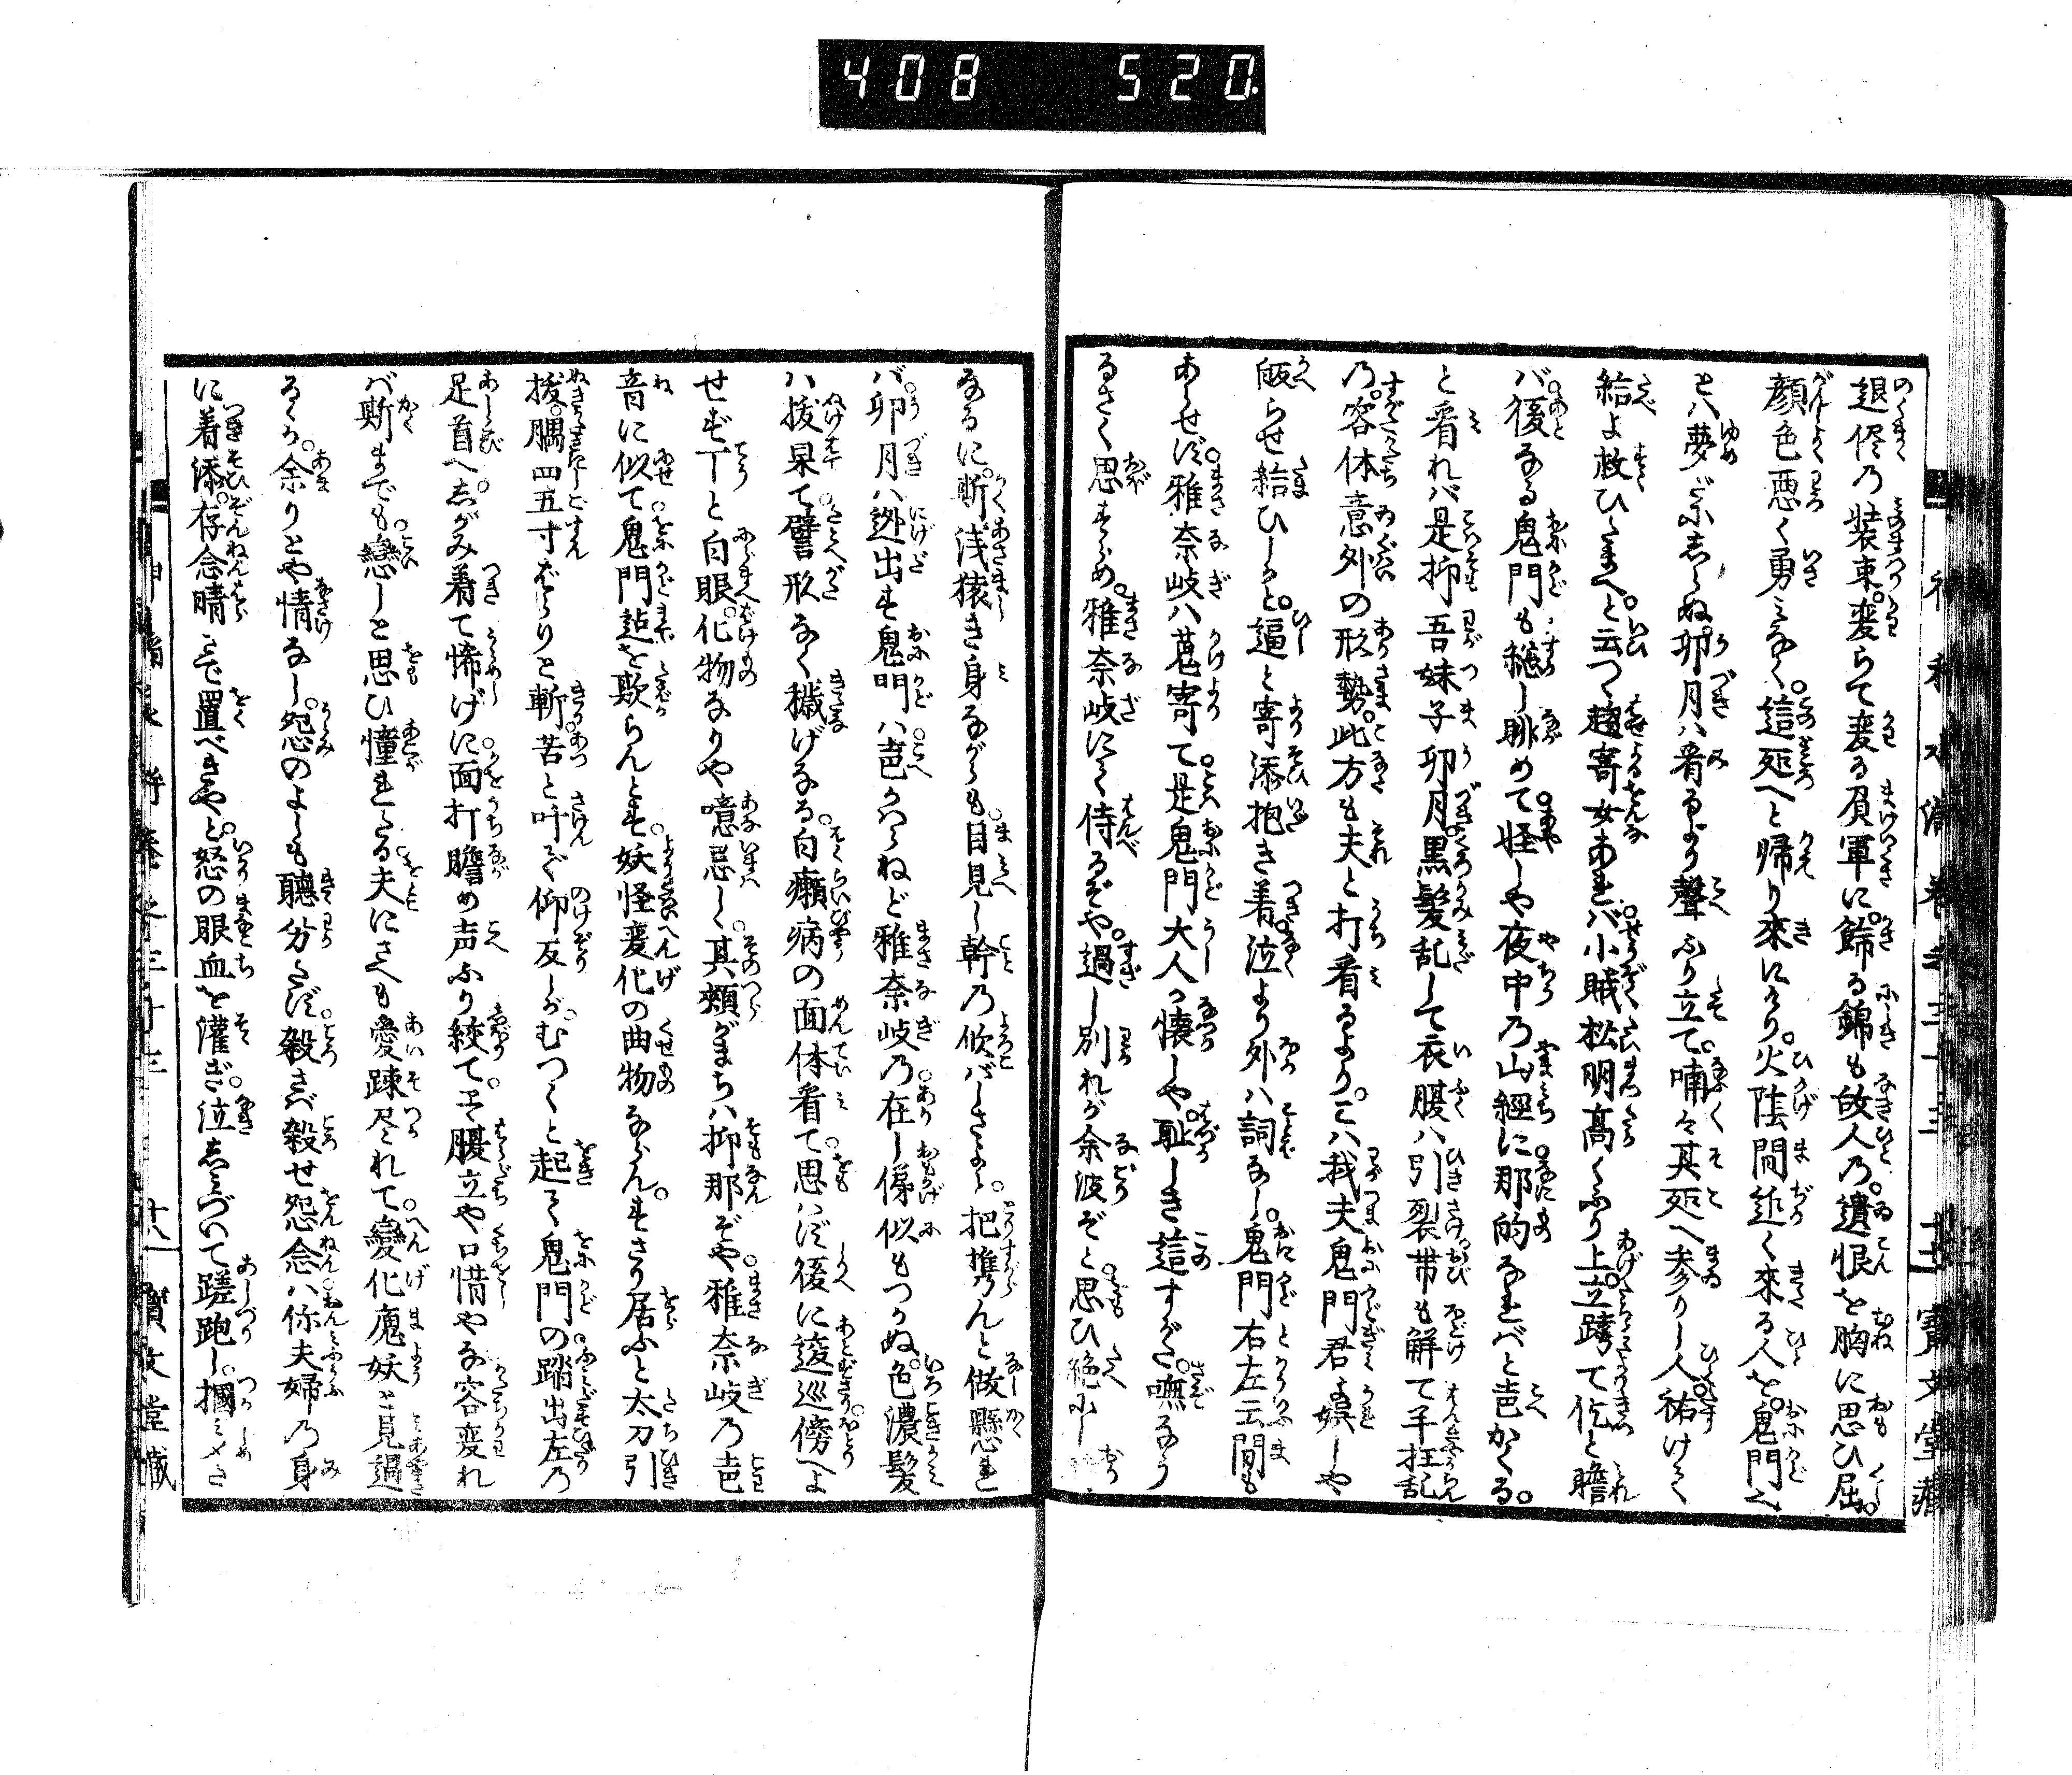 408 520
退儘の装束変らで変る負軍に帰る錦も故人の遺恨を胸に思ひ屈し。
顔色悪く勇みなく。這処へと帰り來にけり。火陰間近く來る人を。鬼門
とハ夢だにしらぬ。卯月ハ看るより聲ふり立て。喃々其処へ参りし人祐けて
給よ救ひたまへ。と云つゝ趨寄女あれバ。小賊松明高くふり上。立蹲て佐と瞻
バ。後なる鬼門も透し眺めて怪しや夜中の山經に那的なれバと声かくる。
と看れバ是抑吾妹子卯月。黒髪乱して衣服ハ引裂帯も解て半狂乱
の。容体意外の形勢。此方も夫と打看るより。こハ我夫鬼門君よ娯しや
皈らせ給ひしかと。逼と寄添抱き着。泣より外ハ詞なし。鬼門右左云間も
あらせず。雅奈岐ハ葛寄て。是鬼門大人よ懐しや。耻しき這すがた。嘸なう
るさく思すらめ。雅奈岐にて侍るぞや。過し別れが余波ぞと思ひ絶にし
なるに。斯浅猿き身ながらも。目見し幹の欣バしさよ。把携んと做懸れ
バ。卯月ハ逊出す鬼門ハ声かはらねど雅奈岐の。在し俤似もつかぬ。色濃髪
ハ拔杲て譬形なく穢げなる。白癩病の面体看て。思ハず後に逡巡傍へよ
せず丁と白眼。化物なりや噫忌し。其頬がまちハ抑那ぞや。雅奈岐の声
音に似て鬼門迠を欺らんとす。妖怪変化の曲物ならん。すさり居ふと太刀引
拔。腸四五寸ばらりと斬。苦と叶ぞ仰反しが。むつくと起て鬼門の踏出左の
足首へ。しがみ着て怖げに面打瞻め声ふり絞て。エヽ腹立や口惜やな容変れ
バ斯までも。戀しと思ひ憧れたる夫にさへも愛踈尽れて。變化魔妖と見過
るゝか。余りとや情なし。怨のよしも聽分たず。殺さバ殺せ怨念ハ。你夫婦の身
に着添。存念晴さで置べきや。と。怒の眼血を灌ぎ。泣しづいて蹉跑し。摑みしめさ
寳文堂藏
寳文堂藏